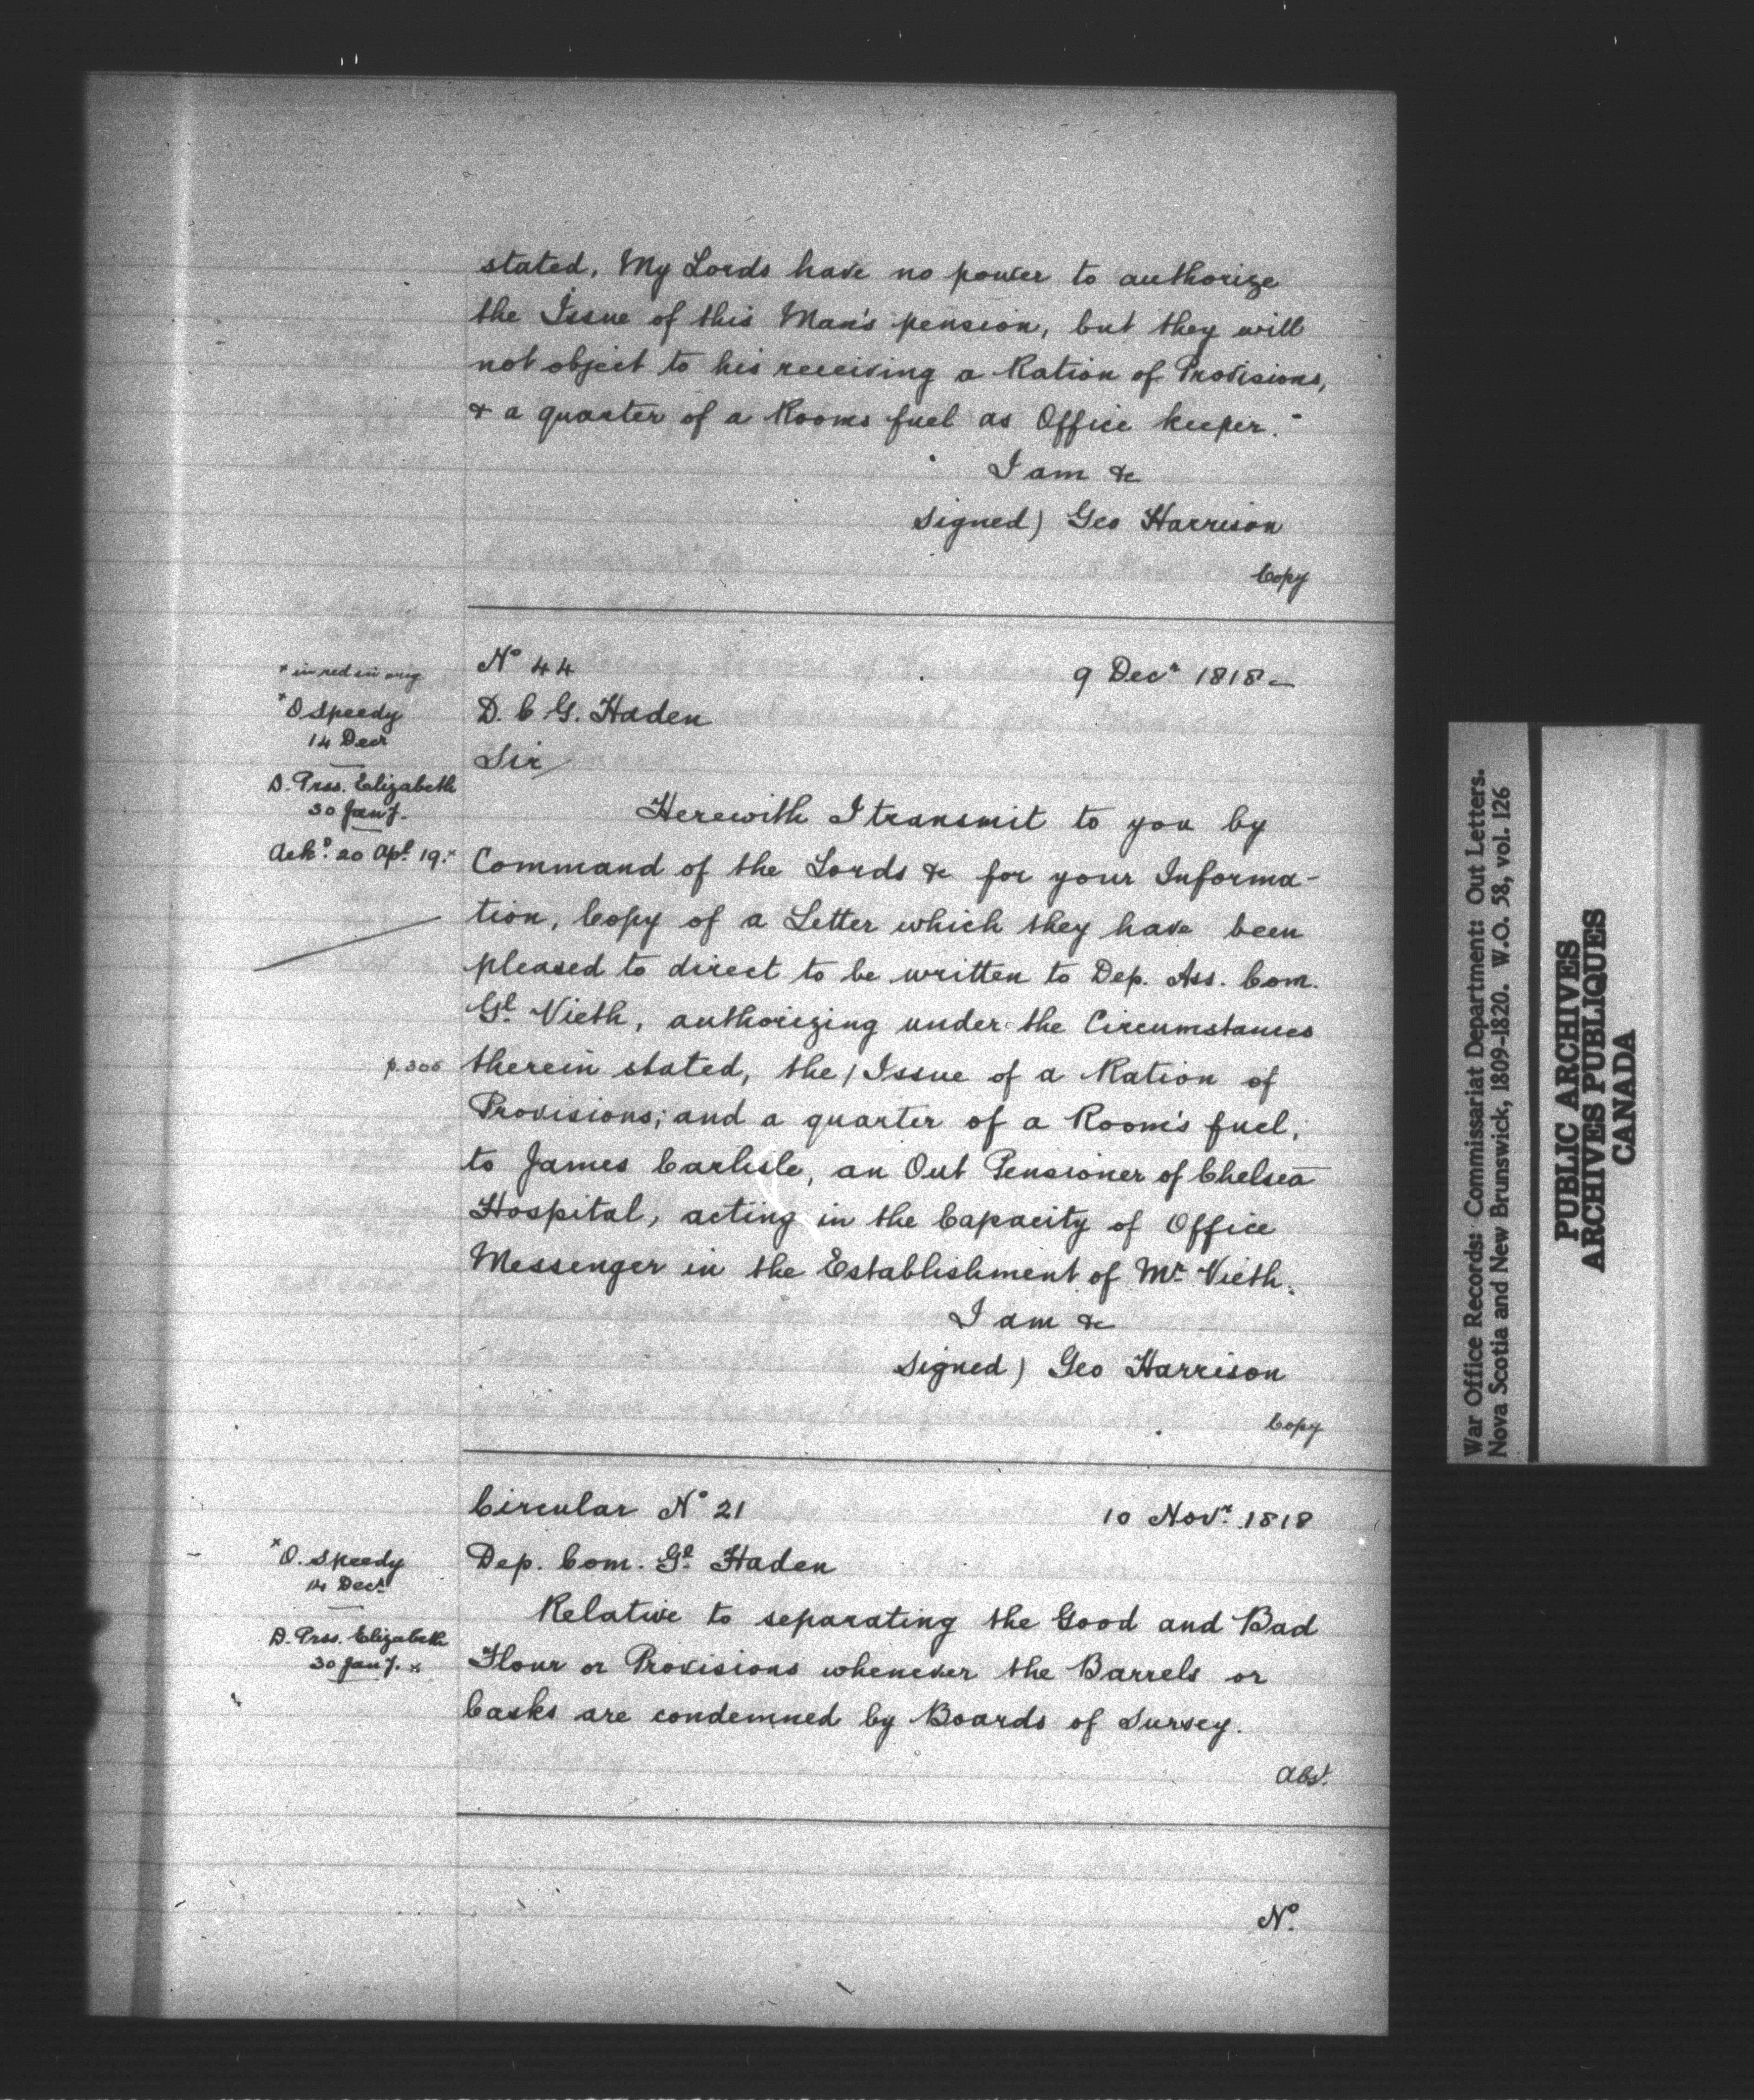 stated, My Lords have no power to authorize
the Issue of this Man's pension, but they will
not object to his receiving a Ration of Provisions,
& a quarter of a Rooms fuel as Office keeper.
I am &c
Signed) Geo Harrison
Copy
* in red in orig
Nº 44
9 Decr 1818
* O Speedy
14 Decr
D. C. G. Haden
Sir
D. Prss. Elizabeth
30 Jany.
Ackd. 20 Apl. 19. *
Herewith I transmit to you by
Command of the Lords &c for your Informa-
tion, Copy of a Letter which they have been
pleased to direct to be written to Dep. Ass. Com.
Gl. Vieth, authorizing under the Circumstances
p.306
therein stated, the / Issue of a Ration of
Provisions; and a quarter of a Room's fuel,
to James Carlisle, an Out Pensioner of Chelsea
Hospital, acting in the Capacity of Office
Messenger in the Establishment of Mr. Vieth.
I am &c
Signed) Geo Harrison
Copy
Circular Nº 21
10 Novr. 1818
* O. Speedy
14 Decr.
Dep. Com. Gl. Haden
D. Prss. Elizabeth
30 Jany. *
Relative to separating the Good and Bad
Flour or Provisions whenever the Barrels or
Casks are condemned by Boards of Survey.
Abst.
Nº.
War Office Records: Commissariat Department: Out Letters.
Nova Scotia and New Brunswick, 1809-1820. W.O. 58, vol. 126
PUBLIC ARCHIVES
ARCHIVES PUBLIQUES
CANADA